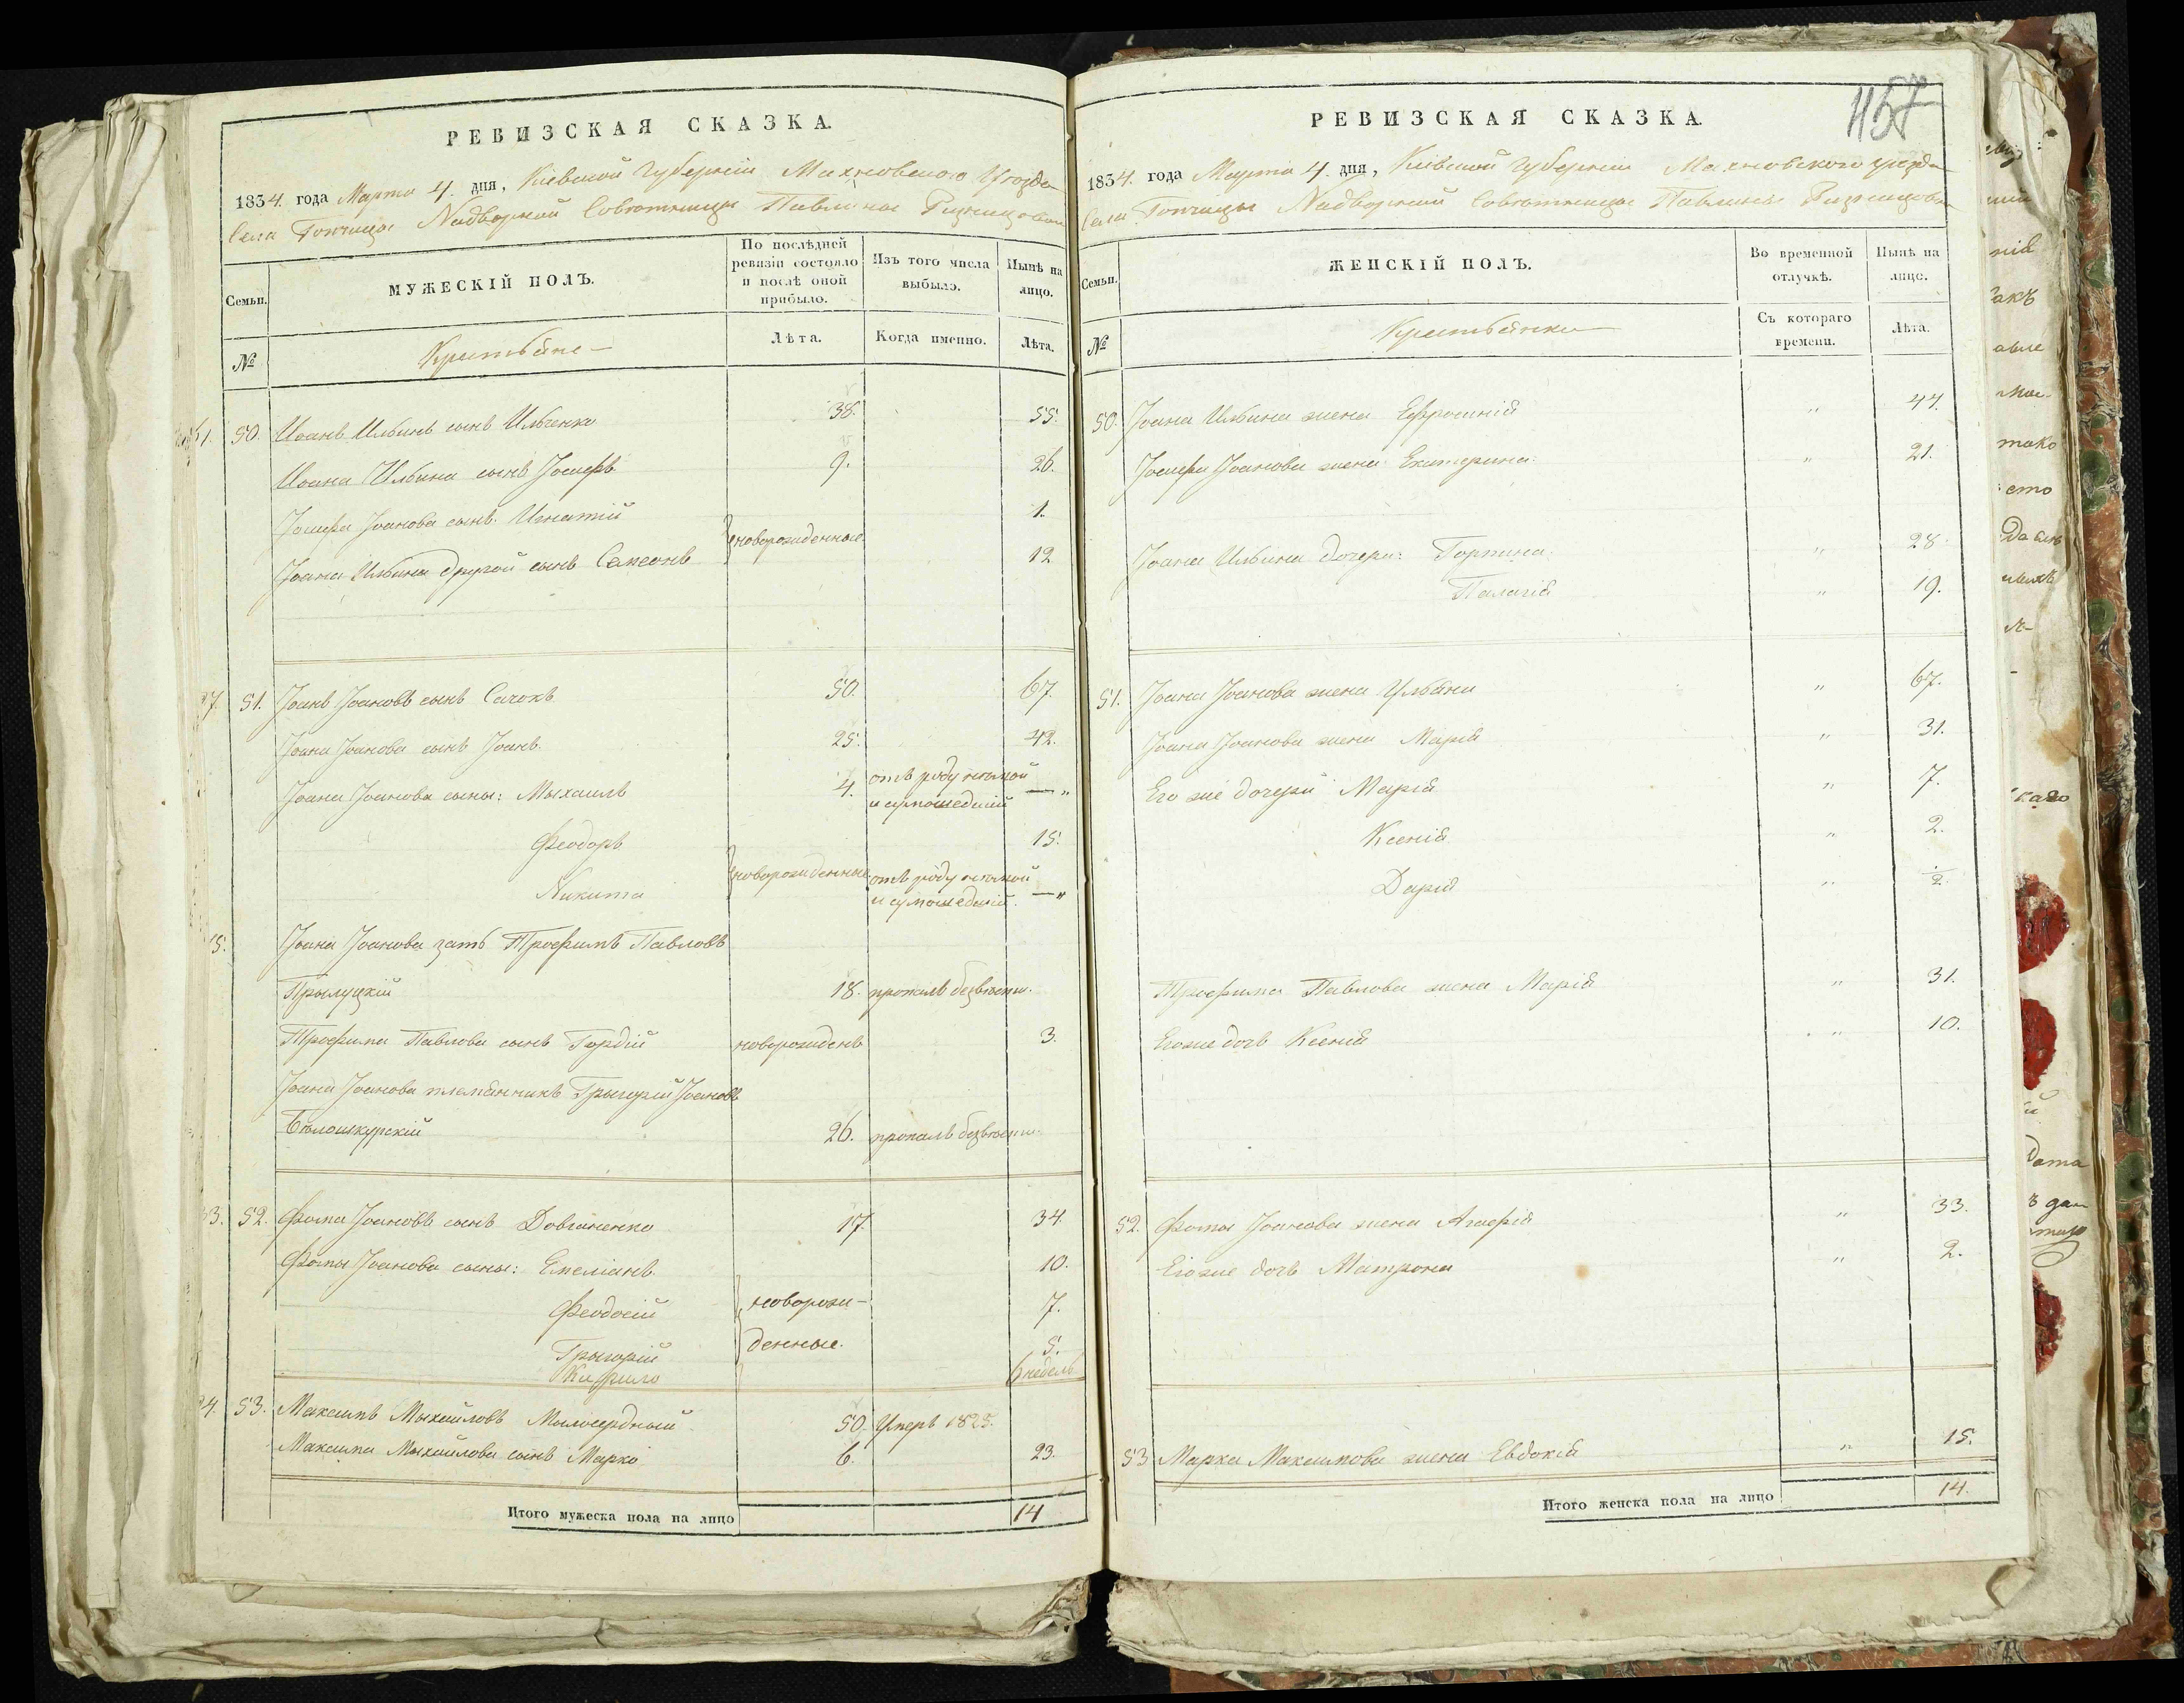 РЕВИЗСКАЯ СКАЗКА.
1834. года Марта 4. дня, Кіевской Губерніи Махновского Уѣзда
Села Гопчицы Надворной Совѣтницы Павлины Ризницовой
Семьи.
МУЖЕСКІЙ ПОЛЪ.
По послѣдней ревизіи состояло и послѣ оной прибыло.
Изъ того числа выбыло.
Нынѣ на лицо.
№
Крестьяне
Лѣта.
Когда именно.
Лѣта.
50. Иоанъ Ильинъ сынъ Ильченко 38. 55.
Иоана Ильина сынъ Іосифъ 9. 26.
Іосифа Іоанова сынъ Игнатій 1.
новорожденные
Іоана Ильина другой сынъ Самсонъ 12
51. Іоанъ Іоановъ сынъ Сачокъ 50. 67.
Іоана Іоанова сынъ Іоанъ 25. 42.
Іоана Іоанова сыны: Мыхаилъ 4. отъ роду немой и сумошедшій — "
Феодоръ 15.
новорожденные
Никита отъ роду немой и сумошедшій. — "
15. Іоана Іоанова зять Трофимъ Павловъ
Прылуцкій 18. пропалъ безвѣсти.
Трофима Павлова сынъ Гордій новорожденъ 3.
Іоана Іоанова племянникъ Грыгорій Іоановъ
Бѣлошкурскій 26. пропалъ безвѣсти.
52. Фома Іоановъ сынъ Довганенко 17. 34.
Фомы Іоанова сыны: Емеліанъ 10.
Феодосій новорож- 7.
Грыгорій денные. 5.
Кирило 6 недель
53. Максимъ Мыхайловъ Мылосердный 50. Умеръ 1825.
Максима Мыхайлова сынъ Марко 6. 23.
Итого мужеска пола на лицо 14
457
РЕВИЗСКАЯ СКАЗКА.
1834. года Марта 4. дня, Кіевской Губерніи Махновского уезда
Села Гопчицы Надворной Совѣтницы Павлины Ризницовой
Семьи.
ЖЕНСКІЙ ПОЛЪ.
Во временной отлучкѣ.
Нынѣ на лицо.
№
Крестьянки
Съ котораго времени.
Лѣта.
50. Іоана Ильина жена Ефросинія " 44.
Іосифа Іоанова жена Екатерина " 21.
Іоана Ильина дочери: Горпина " 28.
Палагія " 19.
51. Іоана Іоанова жена Ульяна " 67.
Іоана Іоанова жена Марія " 31.
Его же дочери Марія " 7.
Ксенія " 2.
Дарія " 1/2
Трофима Павлова жена Марія " 31.
Егоже дочь Ксенія " 10.
52. Фомы Іоанова жена Агафія " 33.
Егоже дочь Матрона " 2.
53 Марка Максимова жена Евдокія " 15.
Итого женска пола на лицо 14.